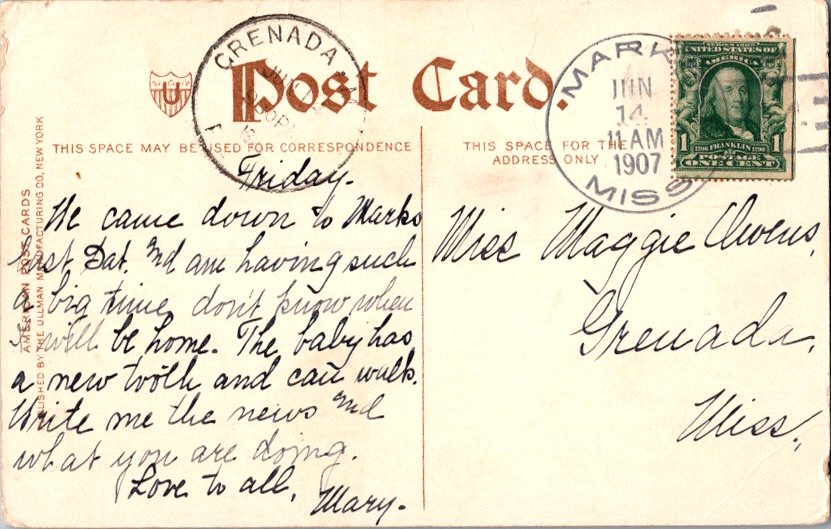 GRENADA
JUN
Post Card.
U
THIS SPACE MAY BE USED FOR CORRESPONDENCE
THIS SPACE FOR THE
ADDRESS ONLY
MARKS
JUN
14
11 AM
1907
MISS
SERIES 1902
UNITED STATES OF
AMERICA
1 1790 FRANKLIN 1790 1
POSTAGE
ONE CENT
AMERICAN POST CARDS
PUBLISHED BY THE ULLMAN MANUFACTURING CO, NEW YORK
Friday.
We came down to Marks
last Sat. and am having such
a big time don't know when
will be home. The baby has
a new tooth and can walk.
Write me the news and
what you are doing.
Love to all,
Mary.
Miss Maggie Owens,
Grenada,
Miss.,